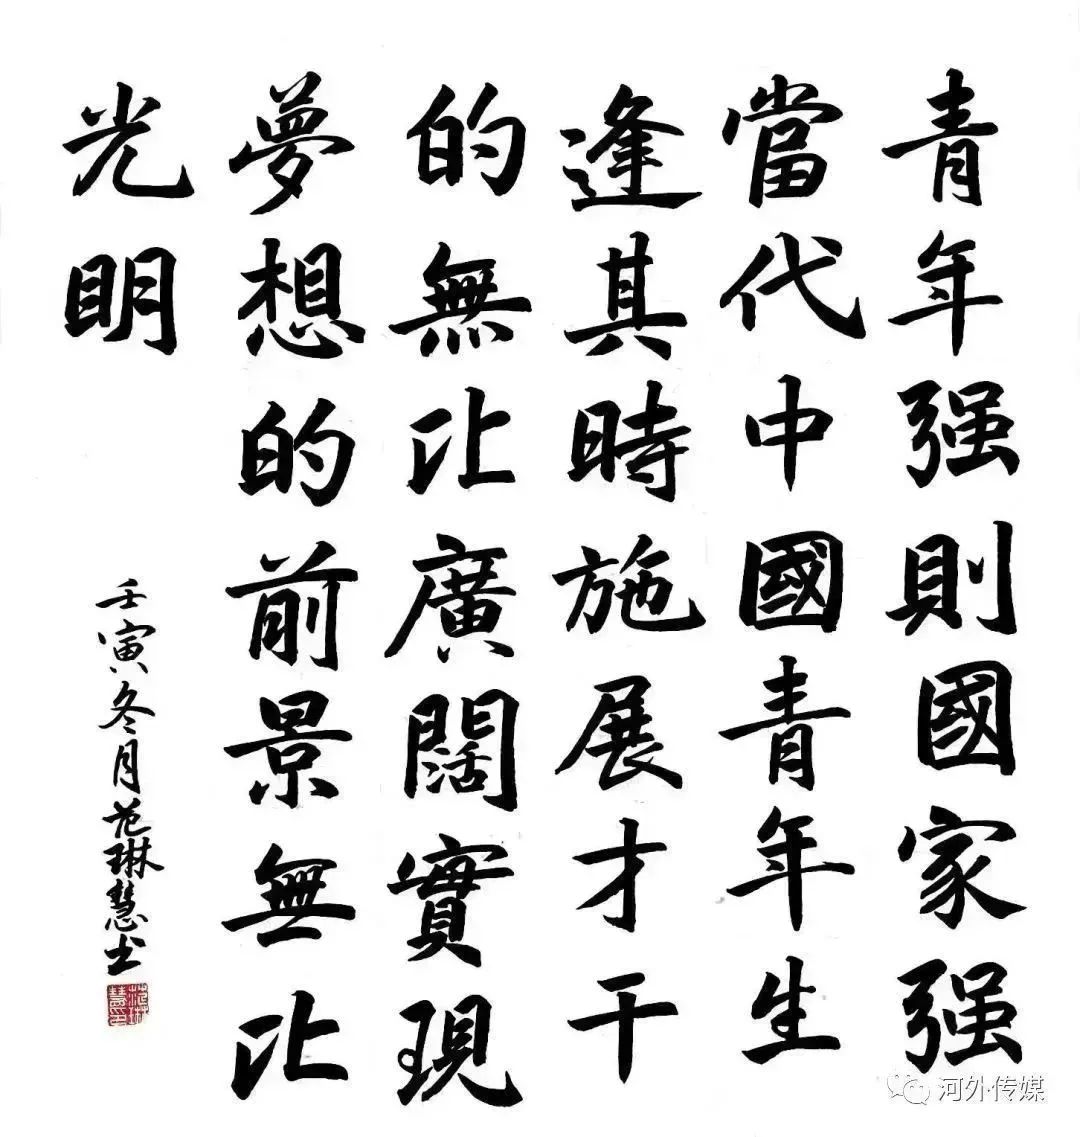 青年强則國家强
當代中國青年生
逢其時施展才干
的無比廣闊實現
夢想的前景無比
光明
壬寅冬月范琳慧书
河外传媒